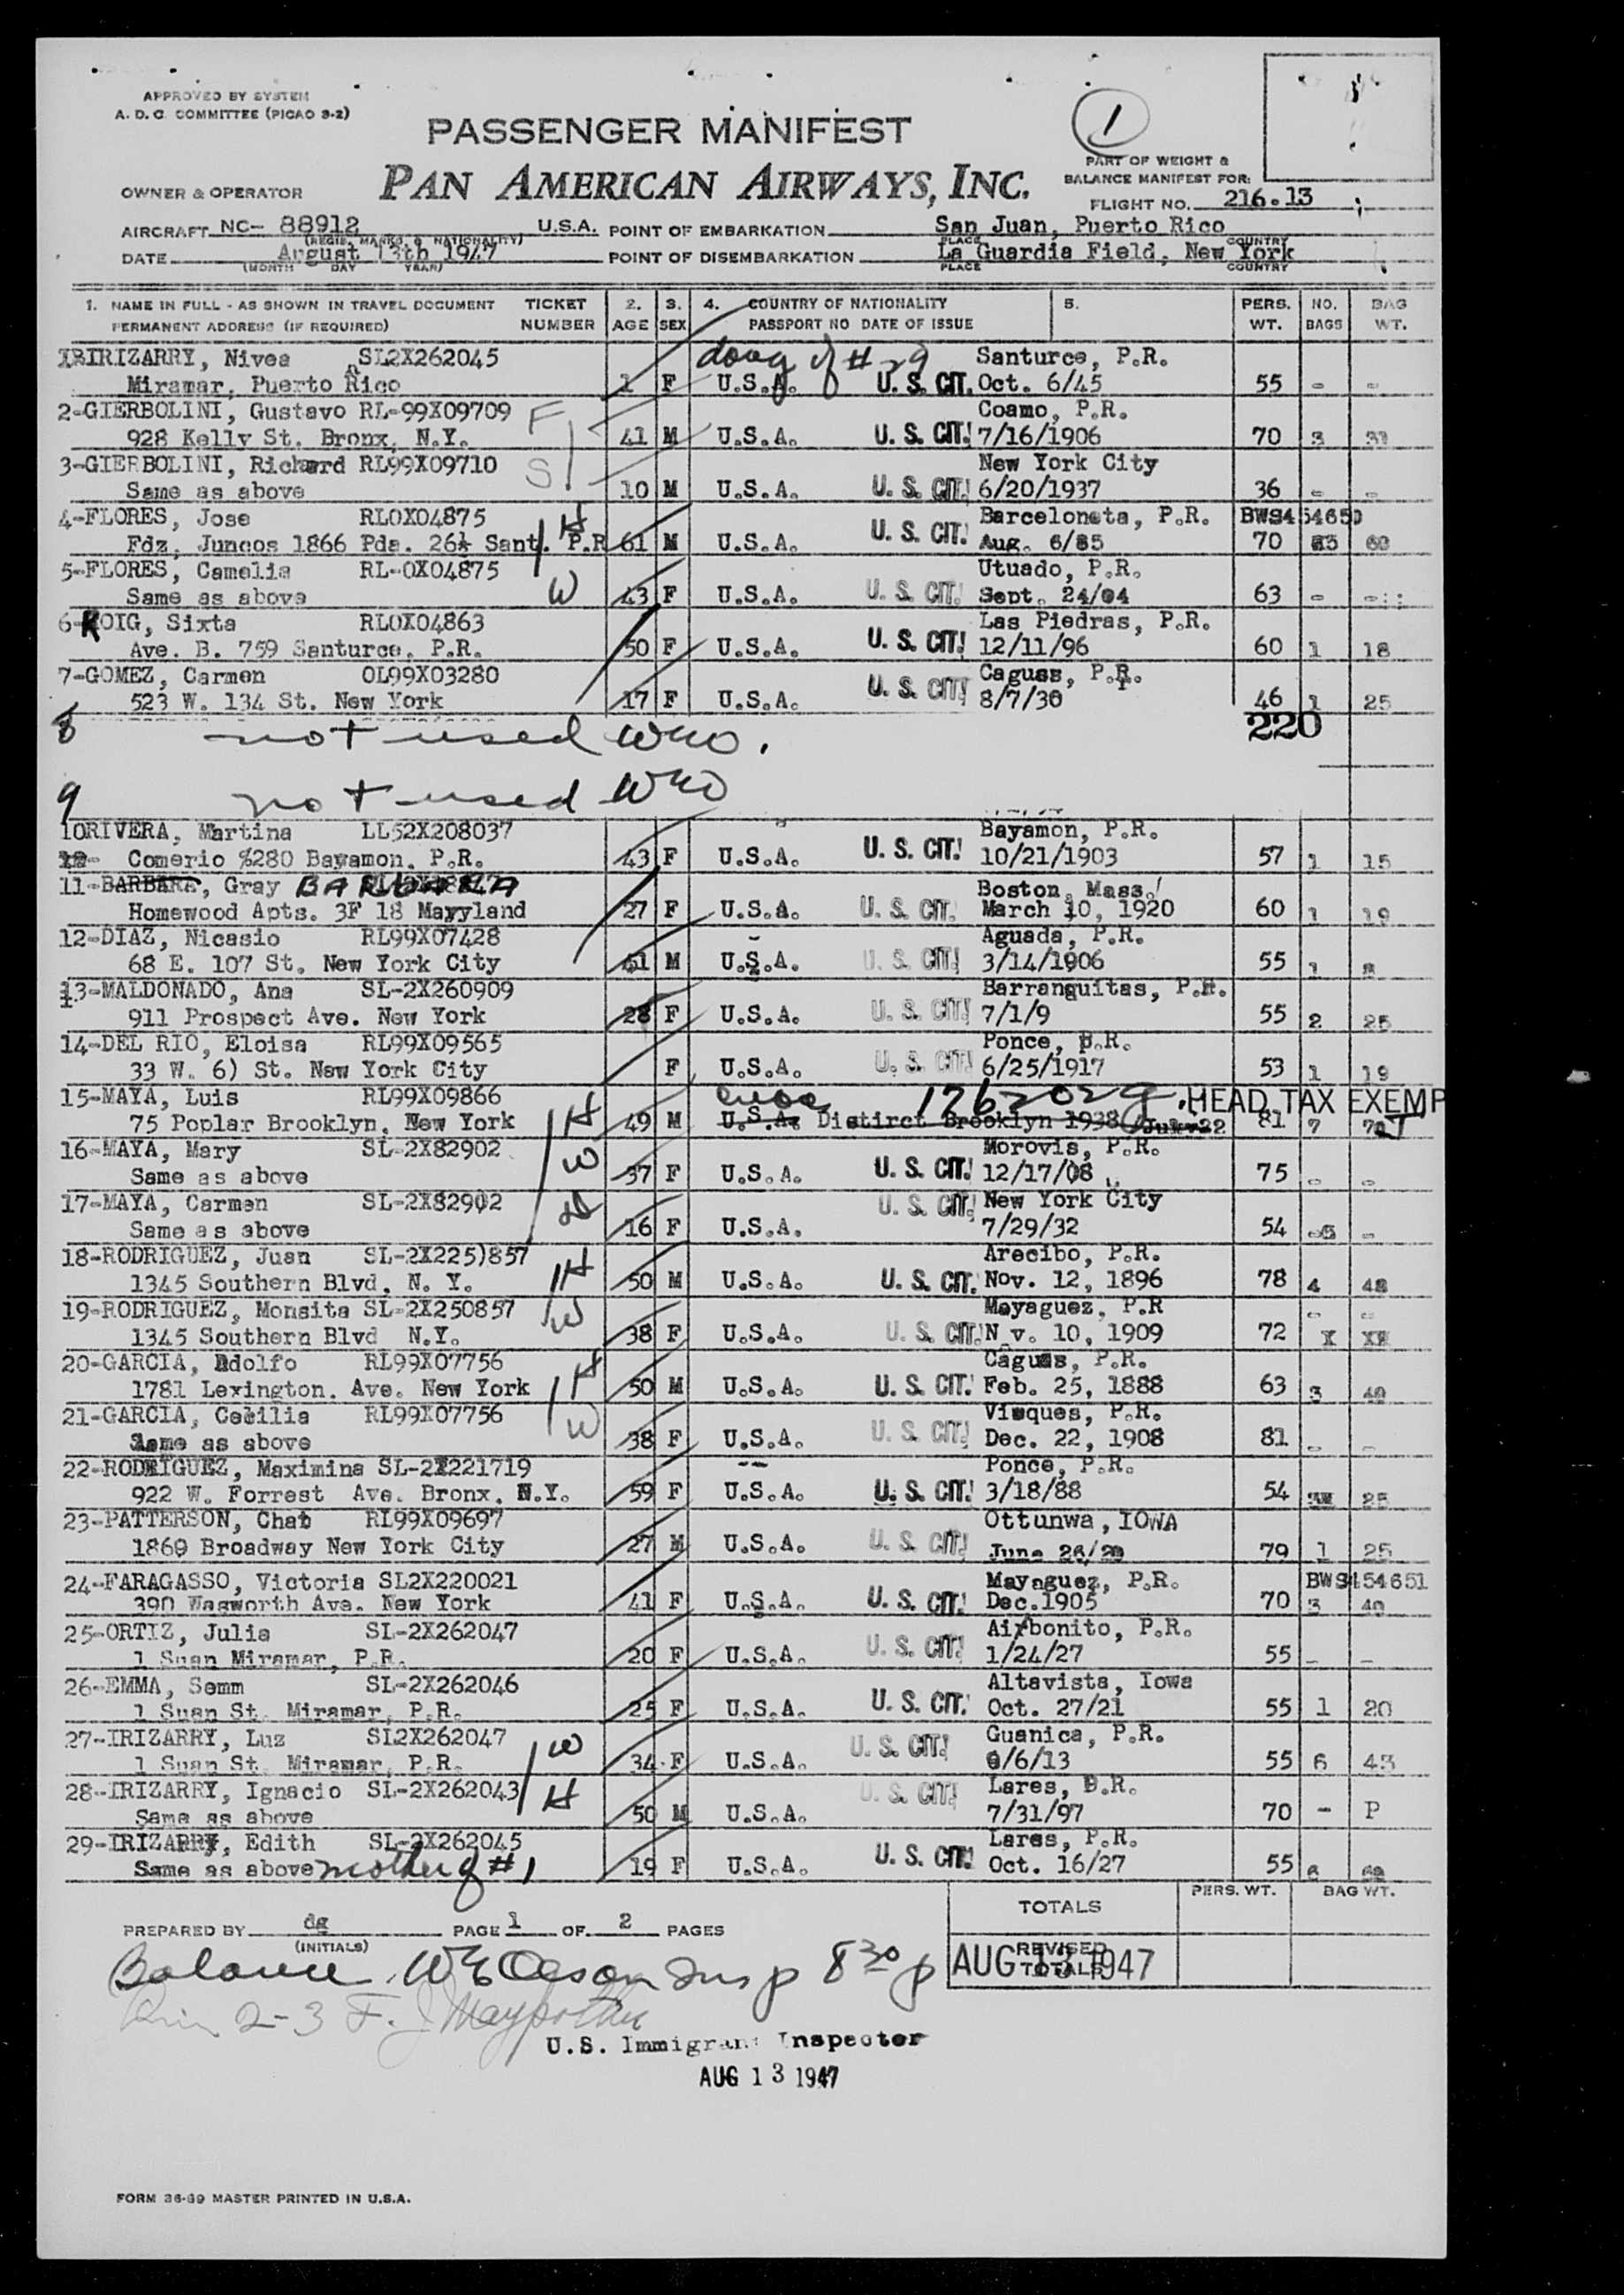 APPROVED BY SYSTEM
A. D. C. COMMITTEE (PICAO 3-2)
PASSENGER MANIFEST
1
PART OF WEIGHT &
BALANCE MANIFEST FOR:
OWNER & OPERATOR PAN AMERICAN AIRWAYS, INC.
FLIGHT NO. 216.13
AIRCRAFT NC- 88912 U.S.A. POINT OF EMBARKATION San Juan, Puerto Rico
(REGIS. MARKS & NATIONALITY) PLACE COUNTRY
DATE August 13th 1947 POINT OF DISEMBARKATION La Guardia Field, New York
(MONTH DAY YEAR) PLACE COUNTRY
1. NAME IN FULL - AS SHOWN IN TRAVEL DOCUMENT TICKET 2. 3. 4. COUNTRY OF NATIONALITY 5. PERS. NO. BAG
PERMANENT ADDRESS (IF REQUIRED) NUMBER AGE SEX PASSPORT NO DATE OF ISSUE WT. BAGS WT.
IRIZARRY, Nivea SL2X262045 daug of #29 Santurce, P.R.
Miramar, Puerto Rico 1 F U.S.A. U. S. CIT. Oct. 6/45 55 - -
2-GIERBOLINI, Gustavo RL-99X09709 F Coamo, P.R.
928 Kelly St. Bronx, N.Y. 41 M U.S.A. U. S. CIT. 7/16/1906 70 3
3-GIERBOLINI, Richard RL99X09710 S New York City
Same as above 10 M U.S.A. U. S. CIT. 6/20/1937 36 - -
4-FLORES, Jose RL0X04875 H Barceloneta, P.R. BWS454650
Fdz, Juncos 1866 Pda. 26½ Sant. P.R 61 M U.S.A. U. S. CIT. Aug. 6/85 70
5-FLORES, Camelia RL-0X04875 W Utuado, P.R.
Same as above 43 F U.S.A. U. S. CIT. Sept. 24/04 63 - -
6-ROIG, Sixta RL0X04863 Las Piedras, P.R.
Ave. B. 759 Santurce, P.R. 50 F U.S.A. U. S. CIT. 12/11/96 60 1 18
7-GOMEZ, Carmen OL99X03280 Caguas, P.R.
523 W. 134 St. New York 17 F U.S.A. U. S. CIT. 8/7/30 46 1 25
220
8 not used WEO.
9 not used WEO
10RIVERA, Martina LL52X208037 Bayamon, P.R.
Comerio %280 Bayamon, P.R. 43 F U.S.A. U. S. CIT. 10/21/1903 57 1 15
11-BARBARA, Gray BARBARA Boston, Mass.
Homewood Apts. 3F 18 Mayyland 27 F U.S.A. U. S. CIT. March 10, 1920 60 1 19
12-DIAZ, Nicasio RL99X07428 Aguada, P.R.
68 E. 107 St. New York City 41 M U.S.A. U. S. CIT. 3/14/1906 55 1 8
13-MALDONADO, Ana SL-2X260909 Barranquitas, P.R.
911 Prospect Ave. New York 28 F U.S.A. U. S. CIT. 7/1/9 55 2 25
14-DEL RIO, Eloisa RL99X09565 Ponce, P.R.
33 W. 6) St. New York City F U.S.A. U. S. CIT. 6/25/1917 53 1 19
15-MAYA, Luis RL99X09866 H Cuba 1262029 HEAD TAX EXEMPT
75 Poplar Brooklyn, New York 49 M U.S.A. Distirct Brooklyn 1938 81 7
16-MAYA, Mary SL-2X82902 W Morovis, P.R.
Same as above 37 F U.S.A. U. S. CIT. 12/17/08 75 - -
17-MAYA, Carmen SL-2X82902 U. S. CIT. New York City
Same as above 16 F U.S.A. 7/29/32 54 -
18-RODRIGUEZ, Juan SL-2X225)857 H Arecibo, P.R.
1345 Southern Blvd, N. Y. 50 M U.S.A. U. S. CIT. Nov. 12, 1896 78 4 48
19-RODRIGUEZ, Monsita SL-2X250857 W Mayaguez, P.R - -
1345 Southern Blvd N.Y. 38 F U.S.A. U. S. CIT. N v. 10, 1909 72
20-GARCIA, Adolfo RL99X07756 H Caguas, P.R.
1781 Lexington. Ave. New York 50 M U.S.A. U. S. CIT. Feb. 25, 1888 63 3 40
21-GARCIA, Cecilia RL99X07756 W Vieques, P.R.
Same as above 38 F U.S.A. U. S. CIT. Dec. 22, 1908 81 - -
22-RODRIGUEZ, Maximina SL-2X221719 Ponce, P.R.
922 W. Forrest Ave. Bronx, N.Y. 59 F U.S.A. U. S. CIT. 3/18/88 54 25
23-PATTERSON, Chat RL99X09697 Ottunwa, IOWA
1869 Broadway New York City 27 M U.S.A. U. S. CIT. June 26/20 79 1 25
24-FARAGASSO, Victoria SL2X220021 Mayaguez, P.R. BWS454651
390 Wasworth Ave. New York 41 F U.S.A. U. S. CIT. Dec.1905 70 3 40
25-ORTIZ, Julia SL-2X262047 Aibonito, P.R.
1 Suan Miramar, P.R. 20 F U.S.A. U. S. CIT. 1/24/27 55 - -
26-EMMA, Semm SL-2X262046 Altavista, Iowa
1 Suan St. Miramar, P.R. 25 F U.S.A. U. S. CIT. Oct. 27/21 55 1 20
27-IRIZARRY, Luz SL2X262047 W Guanica, P.R.
1 Suan St. Miramar, P.R. 34 F U.S.A. U. S. CIT. 9/6/13 55 6 43
28-IRIZARRY, Ignacio SL-2X262043 H Lares, P.R.
Same as above 50 M U.S.A. U. S. CIT. 7/31/97 70 - P
29-IRIZARRY, Edith SL-2X262045 Lares, P.R.
Same as above mother of #1 19 F U.S.A. U. S. CIT. Oct. 16/27 55 6
TOTALS PERS. WT. BAG WT.
PREPARED BY dg PAGE 1 OF 2 PAGES
(INITIALS)
REVISED TOTALS
AUG 13 1947
Balance WEOlson Insp 8 30 p
2-3 F. J.
U.S. Immigrant Inspector
AUG 13 1947
FORM 36-69 MASTER PRINTED IN U.S.A.